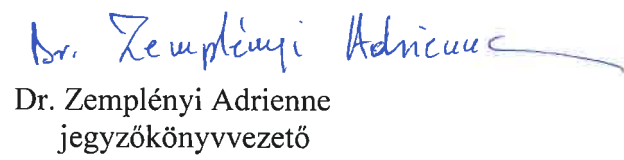 Dr. Zemplényi Adrienne
Dr. Zemplényi Adrienne
jegyzőkönyvvezető